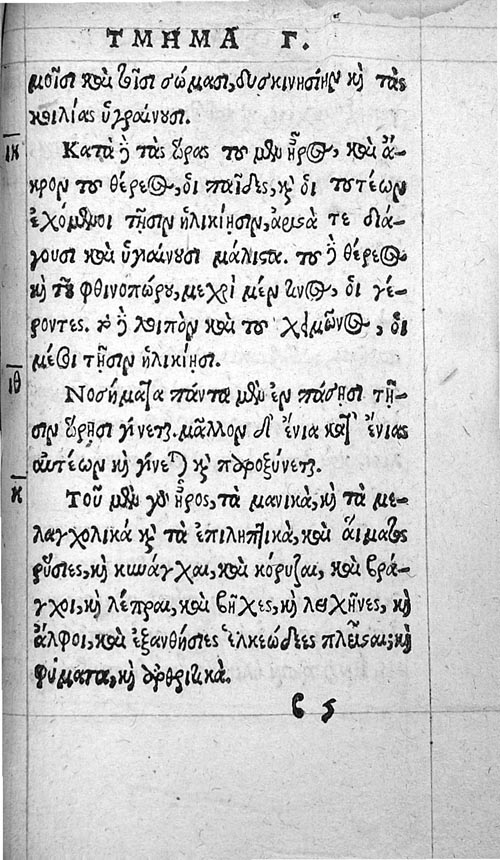 ΤΜΗΜΑ Γ.
μοῖσι καὶ τοῖσι σώμασι, δυσκινησίην καὶ τὰς
κοιλίας ὑγραίνουσι.
ιη Κατὰ δὲ τὰς ὥρας τοῦ μὲν ἦρος, καὶ ἄ-
κρον τοῦ θέρεος, οἱ παῖδες, καὶ οἱ τουτέων
ἐχόμενοι τῇσιν ἡλικίῃσιν, ἄριστά τε διά-
γουσι καὶ ὑγιαίνουσι μάλιστα. τοῦ δὲ θέρεος
καὶ τοῦ φθινοπώρου, μεχρὶ μέν τινος, οἱ γέ-
ροντες. τὸ δὲ λοιπὸν καὶ τοῦ χειμῶνος, οἱ
μέσοι τῇσιν ἡλικίῃσι.
ιθ Νοσήματα πάντα μὲν ἐν πάσῃσι τῇ-
σιν ὥρῃσι γίνεται. μᾶλλον δ' ἔνια κατ' ἐνίας
αὐτέων καὶ γίνεται καὶ παροξύνεται.
κ Τοῦ μὲν γὰρ ἦρος, τὰ μανικὰ, καὶ τὰ με-
λαγχολικά καὶ τὰ ἐπιληπτικὰ, καὶ αἵματος
ῥύσιες, καὶ κυνάγχαι, καὶ κόρυζαι, καὶ βρά-
γχοι, καὶ λέπραι, καὶ βῆχες, καὶ λειχῆνες, καὶ
ἄλφοι, καὶ ἐξανθήσιες ἑλκεώδεες πλεῖσται, καὶ
φύματα, καὶ ἀρθριτικά.